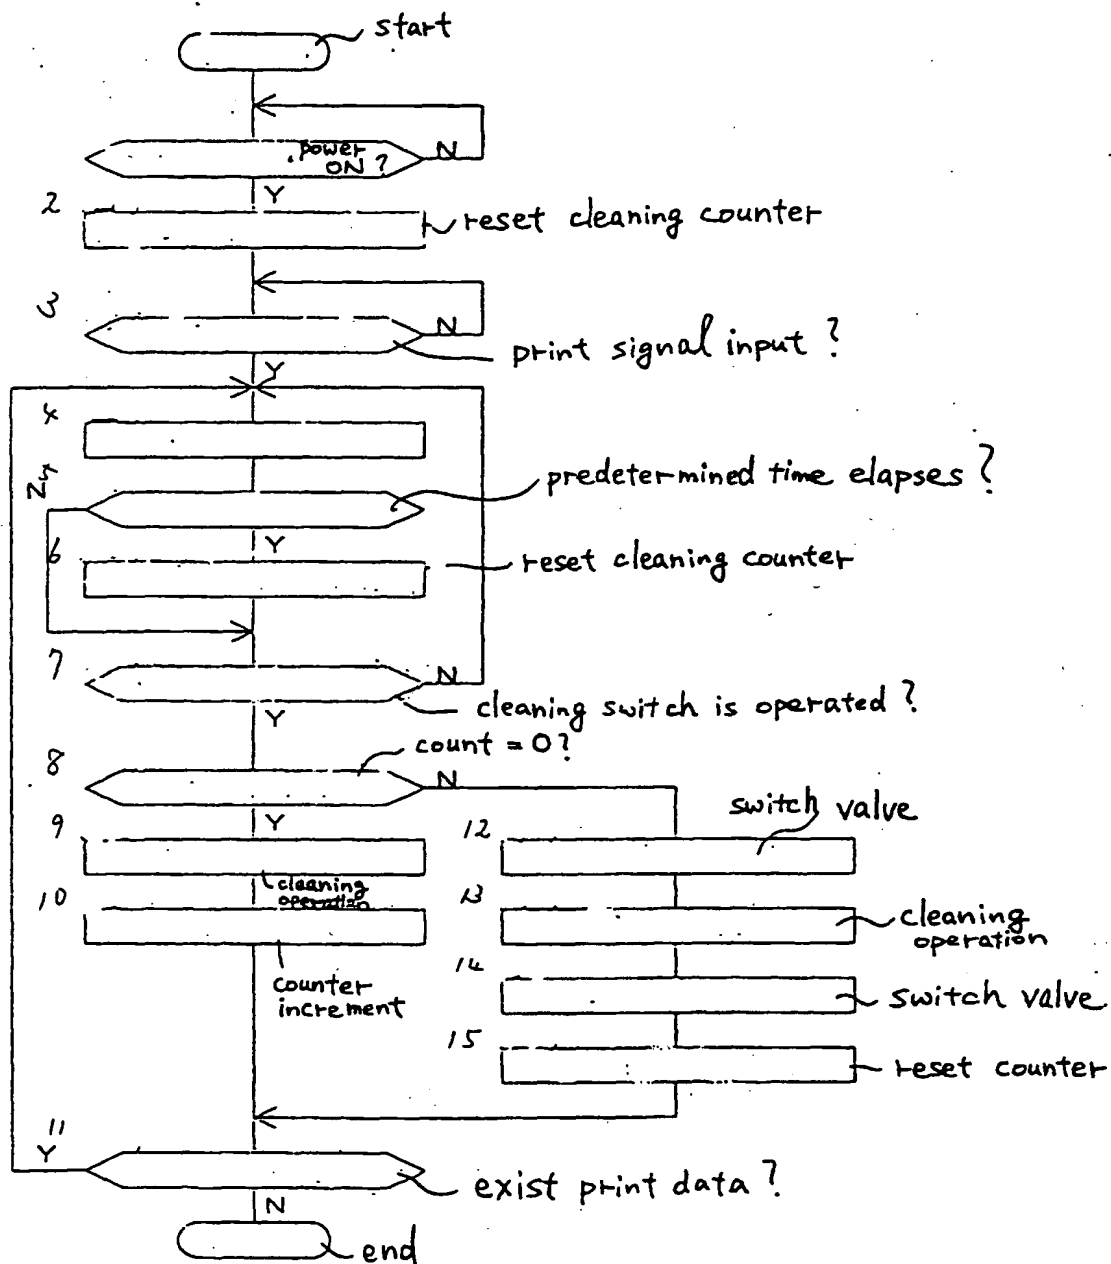 start
power
ON ?
N
Y
2
reset cleaning counter
3
N
print signal input ?
Y
4
predetermined time elapses ?
N
Y
6
reset cleaning counter
7
N
cleaning switch is operated ?
Y
count = 0 ?
8
N
Y
switch valve
9
12
cleaning
operation
10
13
cleaning
operation
counter
increment
14
switch valve
15
reset counter
11
Y
exist print data ?
N
end